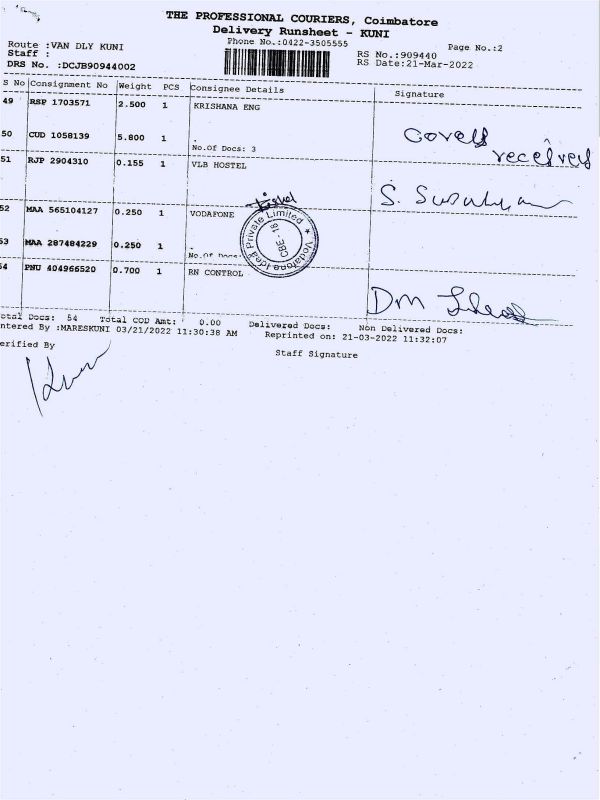 THE PROFESSIONAL COURIERS, Coimbatore
Delivery Runsheet - KUNI
Phone No.:0422-3505555
Page No.:2
Route :VAN DLY KUNI
RS No.:909440
Staff :
RS Date:21-Mar-2022
DRS No. :DCJB90944002
S No Consignment No Weight PCS Consignee Details Signature
49 RSP 1703571 2.500 1 KRISHANA ENG
50 CUD 1058139 5.800 1 .
No.Of Docs: 3
covers received
51 RJP 2904310 0.155 1 VLB HOSTEL
52 MAA 565104127 0.250 1 VODAFONE
53 MAA 287484229 0.250 1 .
No.Of Docs:
Vodafone Idea Private Limited
CBE-18
54 PNU 404966520 0.700 1 RN CONTROL
Total Docs: 54 Total COD Amt: 0.00 Delivered Docs: Non Delivered Docs:
ntered By :MARESKUNI 03/21/2022 11:30:38 AM Reprinted on: 21-03-2022 11:32:07
erified By
Staff Signature